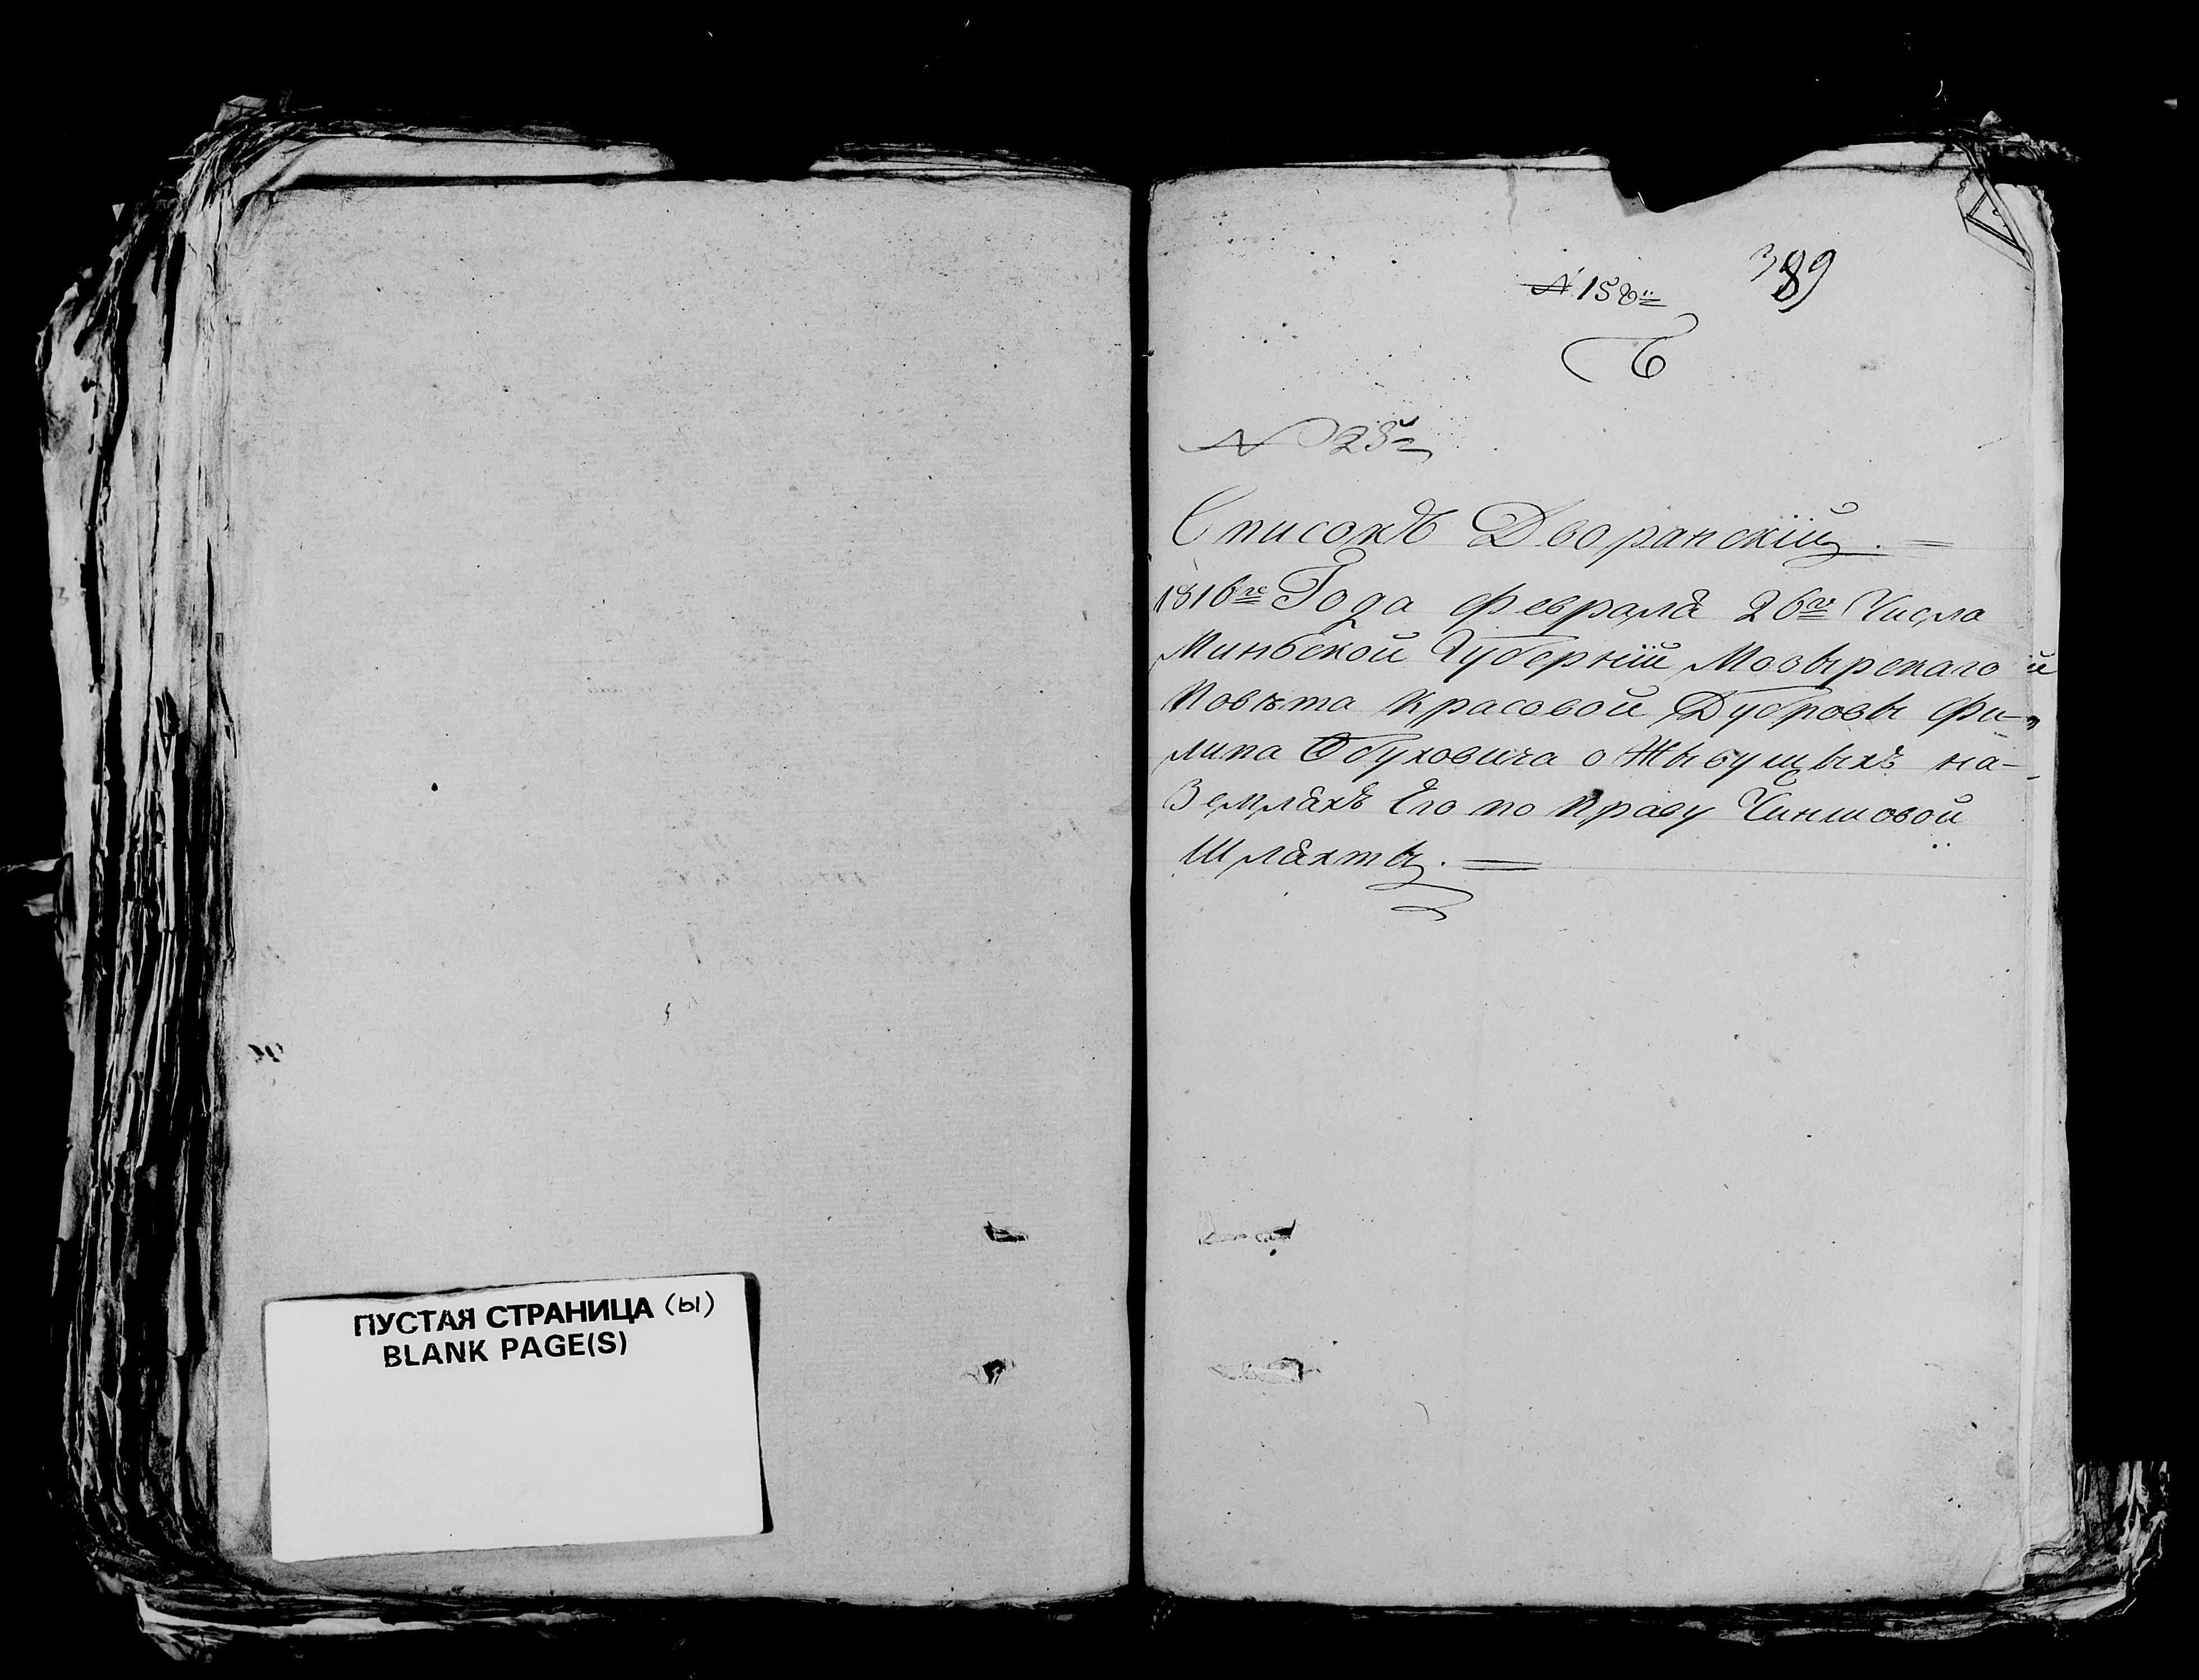 ПУСТАЯ СТРАНИЦА (ы)
BLANK PAGE(S)
389
№ 15
6
№ 28й
Списокъ Дворанскій.=
1816го Года февраля 26го Числа
Миньской Губерніи Мозырскаго
Повѣта Красовой Дубровы Фи-
липа Обуховича о Жывущыхъ на-
Земляхъ Его по Праву Чиншовой
Шляхты.=